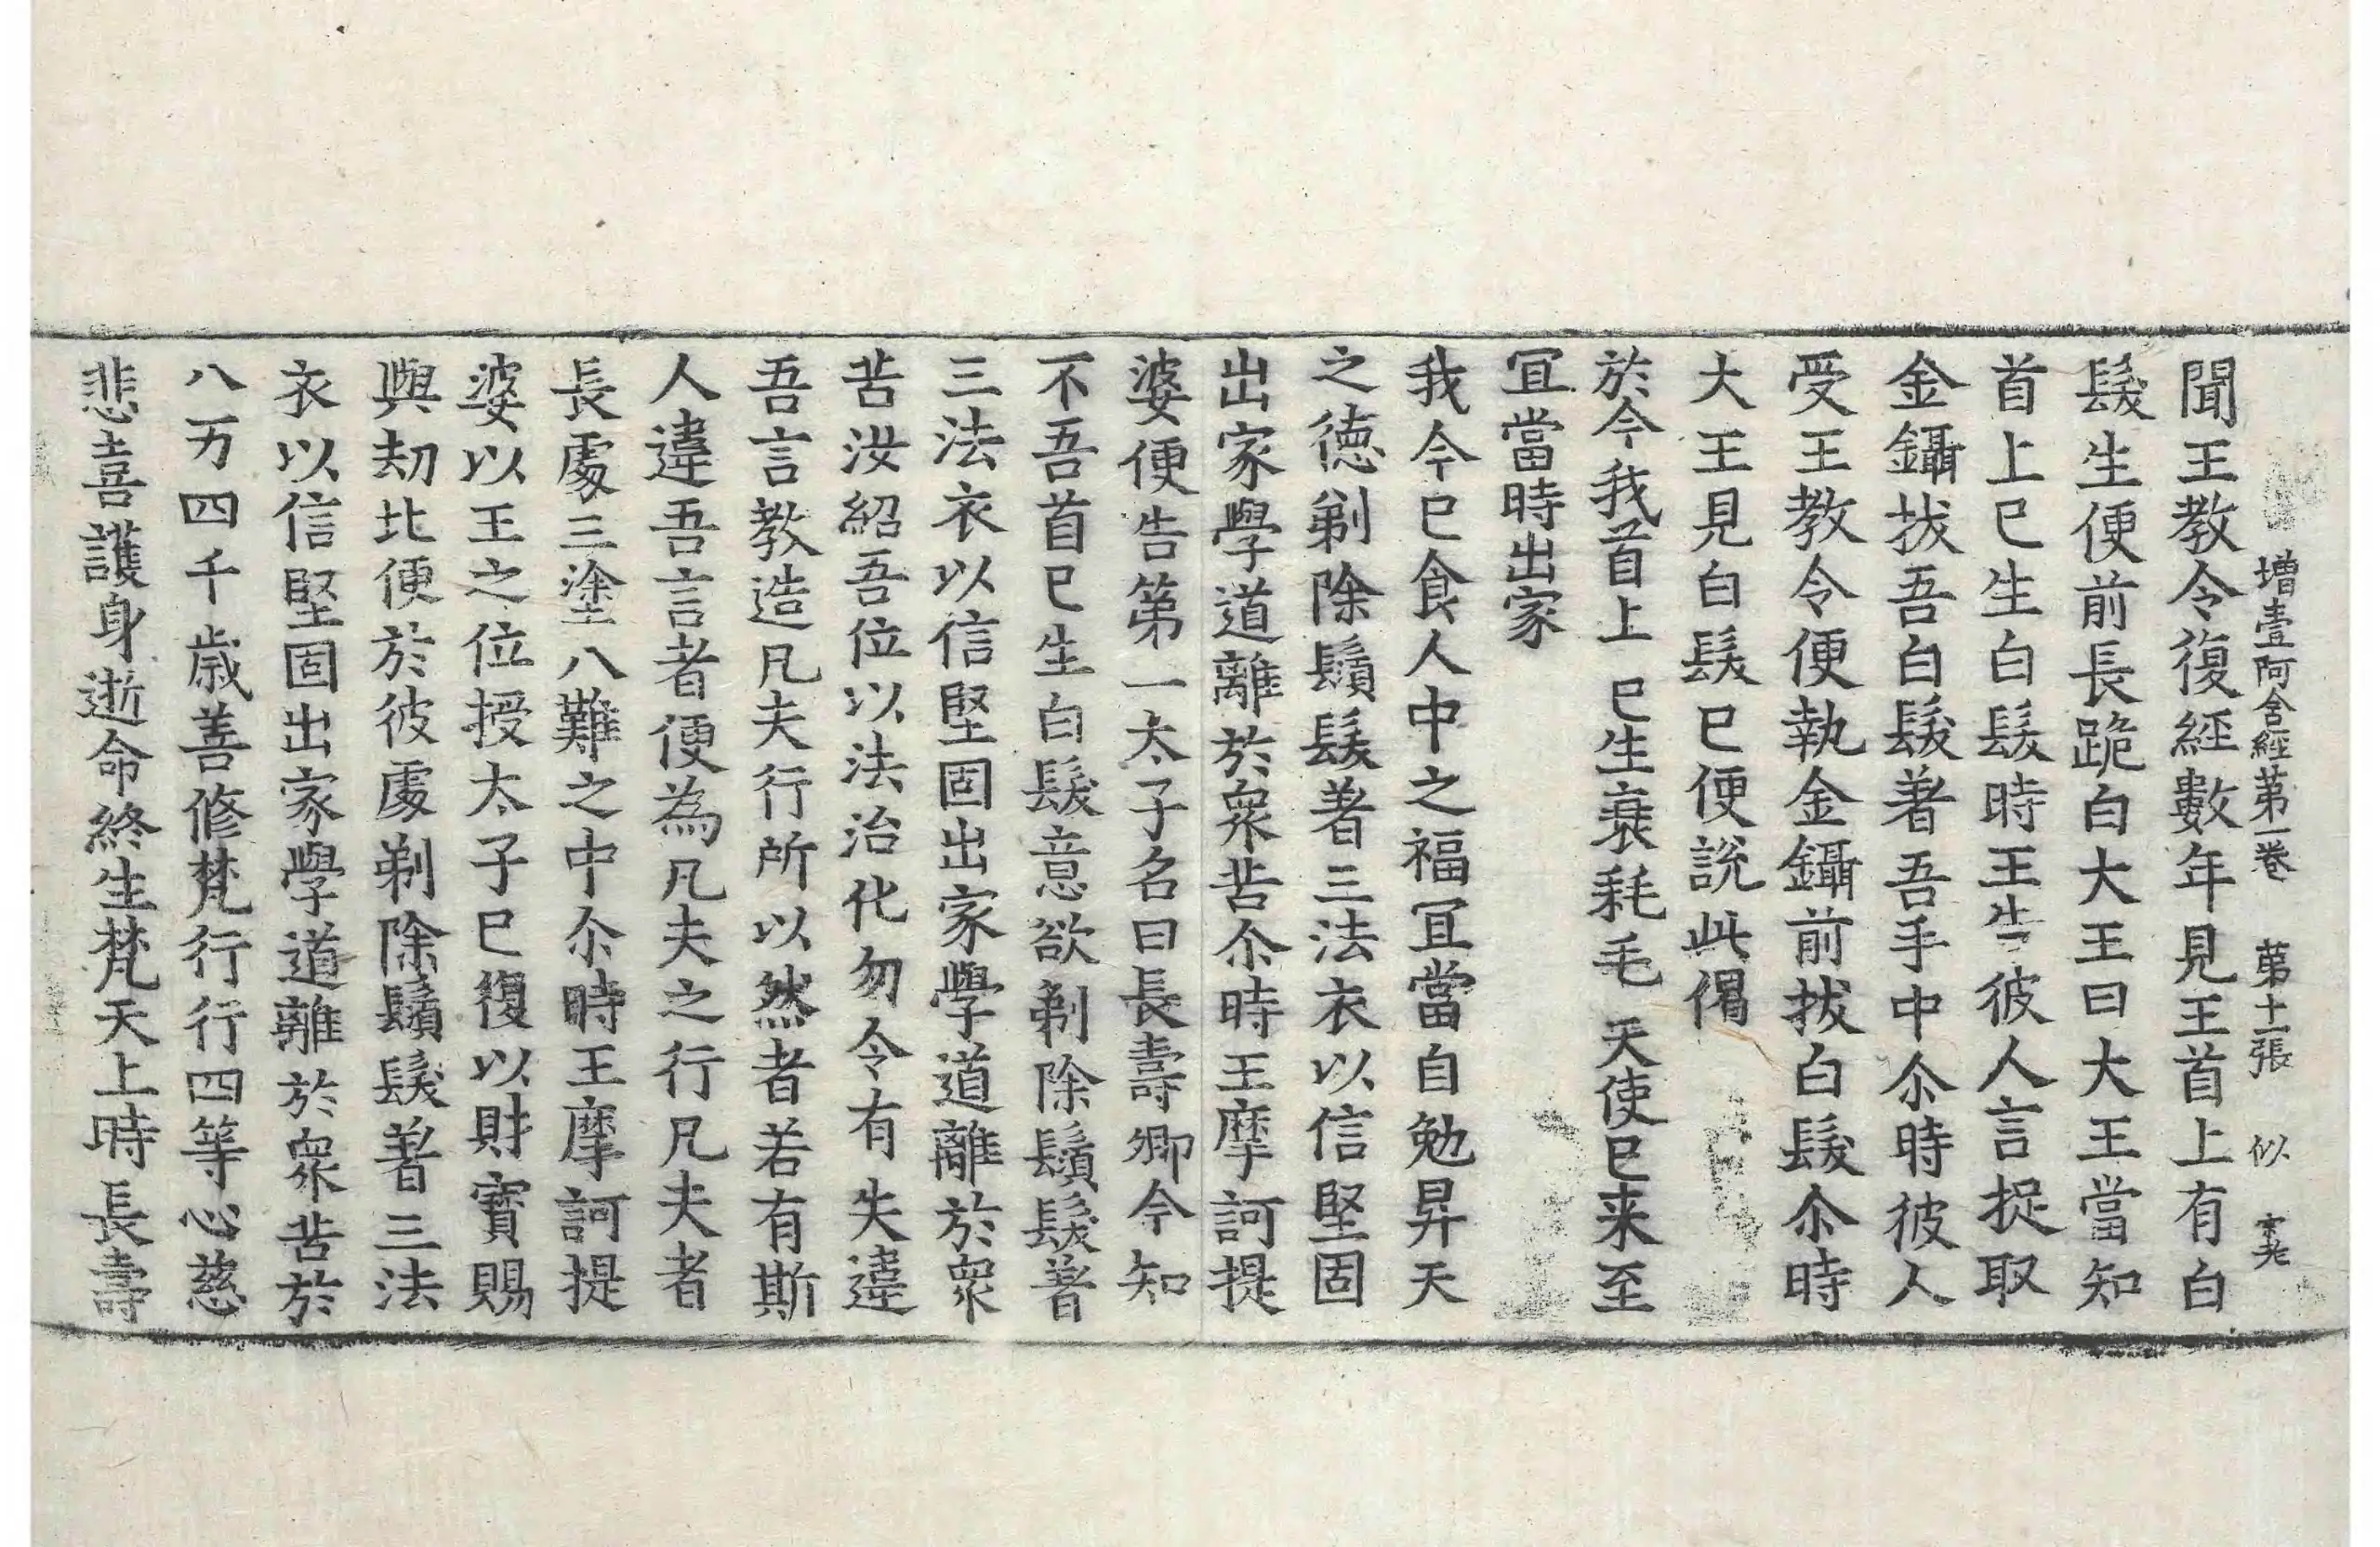 增壹阿含經第一卷 第十一張 似
聞王教令復經數年見王首上有白
髮生便前長跪白大王曰大王當知
首上已生白髮時王告彼人言捉取
金鑷拔吾白髮著吾手中尒時彼人
受王教令便執金鑷前拔白髮尒時
大王見白髮已便說此偈
於今我首上 已生衰耗毛 天使已来至
冝當時出家
我今已食人中之福冝當自勉昇天
之徳剃除鬚髮著三法衣以信堅固
出家學道離於衆苦尒時王摩訶提
婆便告第一太子名曰長壽卿今知
不吾首已生白髮意欲剃除鬚髮著
三法衣以信堅固出家學道離於衆
苦汝紹吾位以法治化勿令有失違
吾言教造凡夫行所以然者若有斯
人違吾言者便為凡夫之行凡夫者
長處三塗八難之中尒時王摩訶提
婆以王之位授太子已復以財寶賜
與刧比便於彼處剃除鬚髮著三法
衣以信堅固出家學道離於衆苦於
八万四千歲善修梵行行四等心慈
悲喜護身逝命終生梵天上時長壽